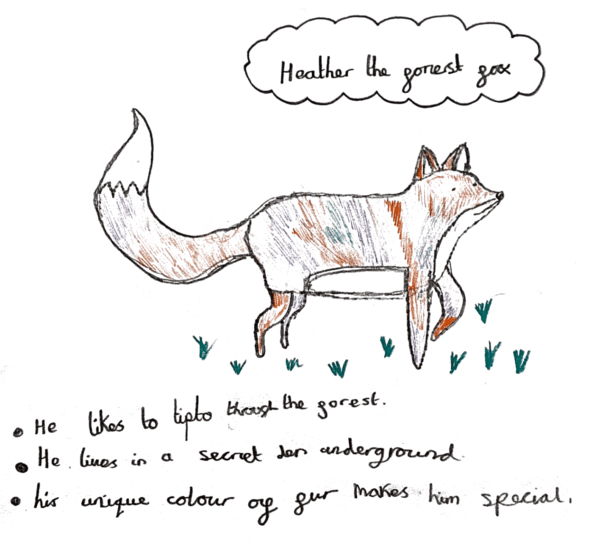 Heather the forest fox
• He likes to tipto through the forest.
• He lives in a secret den underground.
• his unique colour of fur makes him special.